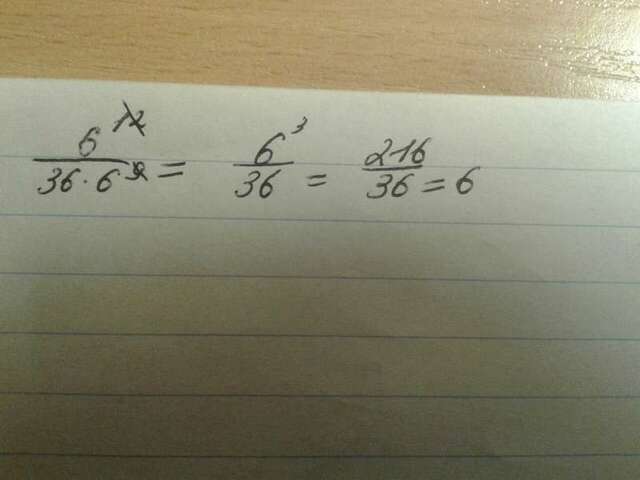 6^12 / 36·6^9 = 6^3 / 36 = 216 / 36 = 6